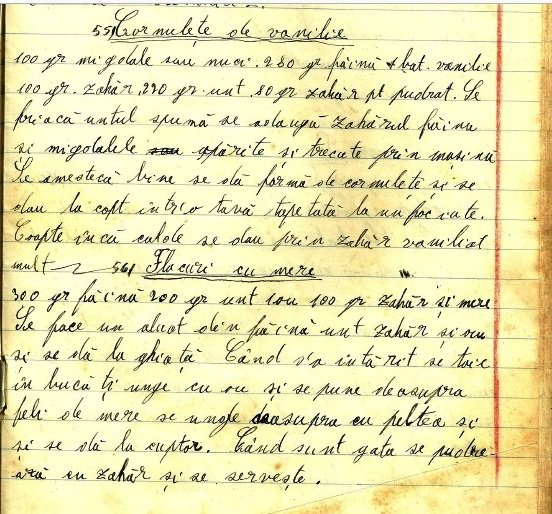 55) Cornulețe de vanilie
100 gr migdale sau nuci. 280 gr făină 1 bat. vanilie
100 gr. zahăr, 220 gr unt. 80 gr zahăr pt pudrat. Se
freacă untul spumă se adaugă zahărul făina
si migdalele opărite și trecute prin masină
Se amestecă bine se dă formă de cornulețe și se
dau la copt intr'o tavă tapetată la un foc iute.
Coapte incă calde se dau prin zahăr vaniliat
mult 56) Flacuri cu mere
300 gr făină 200 gr unt 1ou 100 gr zahăr și mere
Se face un aluat din făină unt zahăr și ou
si se dă la ghiață Când s'a intărit se taie
in bucăți unge cu ou și se pune deasupra
felii de mere se unge deasupra cu peltea și
si se dă la cuptor. Când sunt gata se pudre-
ază cu zahăr și se servește.